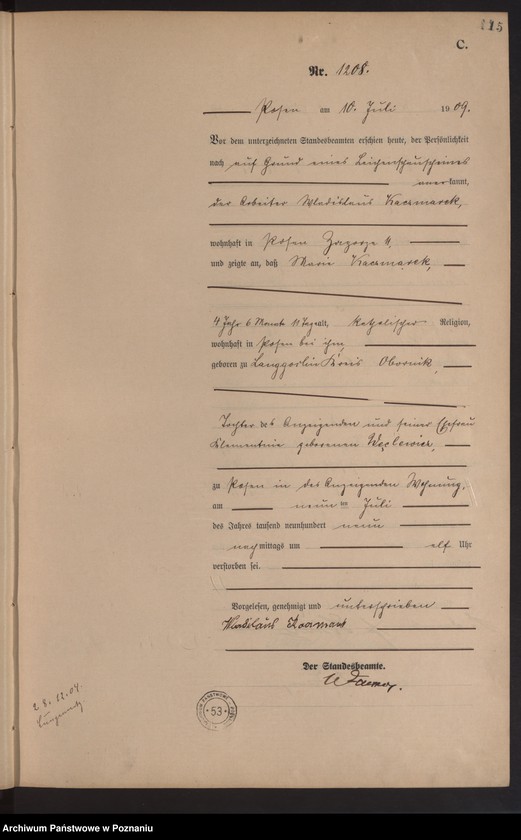 115
C.
Nr. 1208.
Posen am 10. Juli 1909.
Vor dem unterzeichneten Standesbeamten erschien heute, der Persönlichkeit
nach auf Grund eines Leichenschauscheines
anerkannt,
der Arbeiter Wladislaus Kaczmarek,
wohnhaft in Posen Zagorze 11,
und zeigte an, daß Marie Kaczmarek,
4 Jahr 6 Monate 11 Tage alt, katholischer Religion,
wohnhaft in Posen bei ihm,
geboren zu Langgoslin Kreis Obornik,
Tochter des Anzeigenden und seiner Ehefrau
Klementine geborenen
zu Posen in des Anzeigenden Wohnung,
am neunten Juli
des Jahres tausend neunhundert neun
nachmittags um elf Uhr
verstorben sei.
Vorgelesen, genehmigt und unterschrieben
Kaczmarek
Der Standesbeamte.
28.12.04.
ARCHIWUM PAŃSTWOWE
53
Archiwum Państwowe w Poznaniu